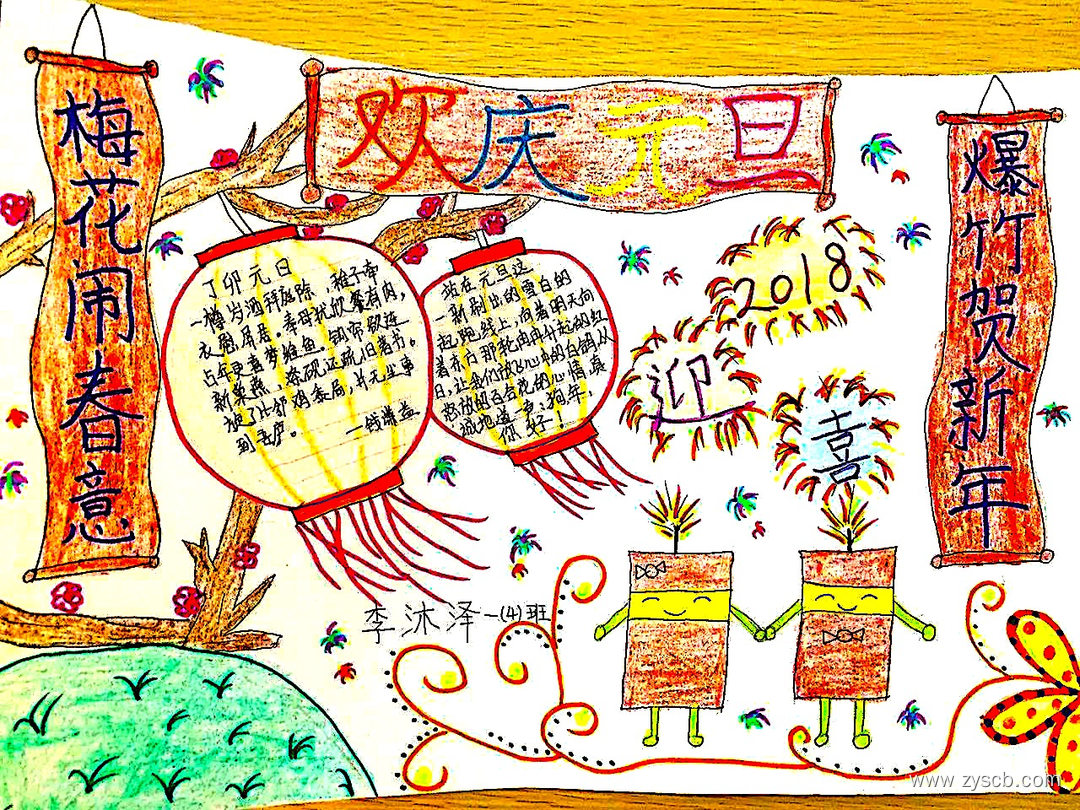 欢庆元旦
梅花闹春意
爆竹贺新年
丁卯元日
一樽岁酒拜庭除 稚子牵
衣慰屏居。奉母犹欣餐有肉，
占年更喜梦维鱼。钩帘欲连
新巢燕，涤砚还疏旧着书。
旋了比邻鸡黍局，并无尘事
到吾庐。 一钱谦益
站在元旦这
一新刷出的雪白的
起跑线上，向着明天向
着东方那轮冉冉升起的红
日，让我们放飞心中的白鸽，从
怒放如百合花的心情，真
诚地道一声：狗年，
你好！
2018
迎
喜
李沐泽一(4)班
www.zyscb.com